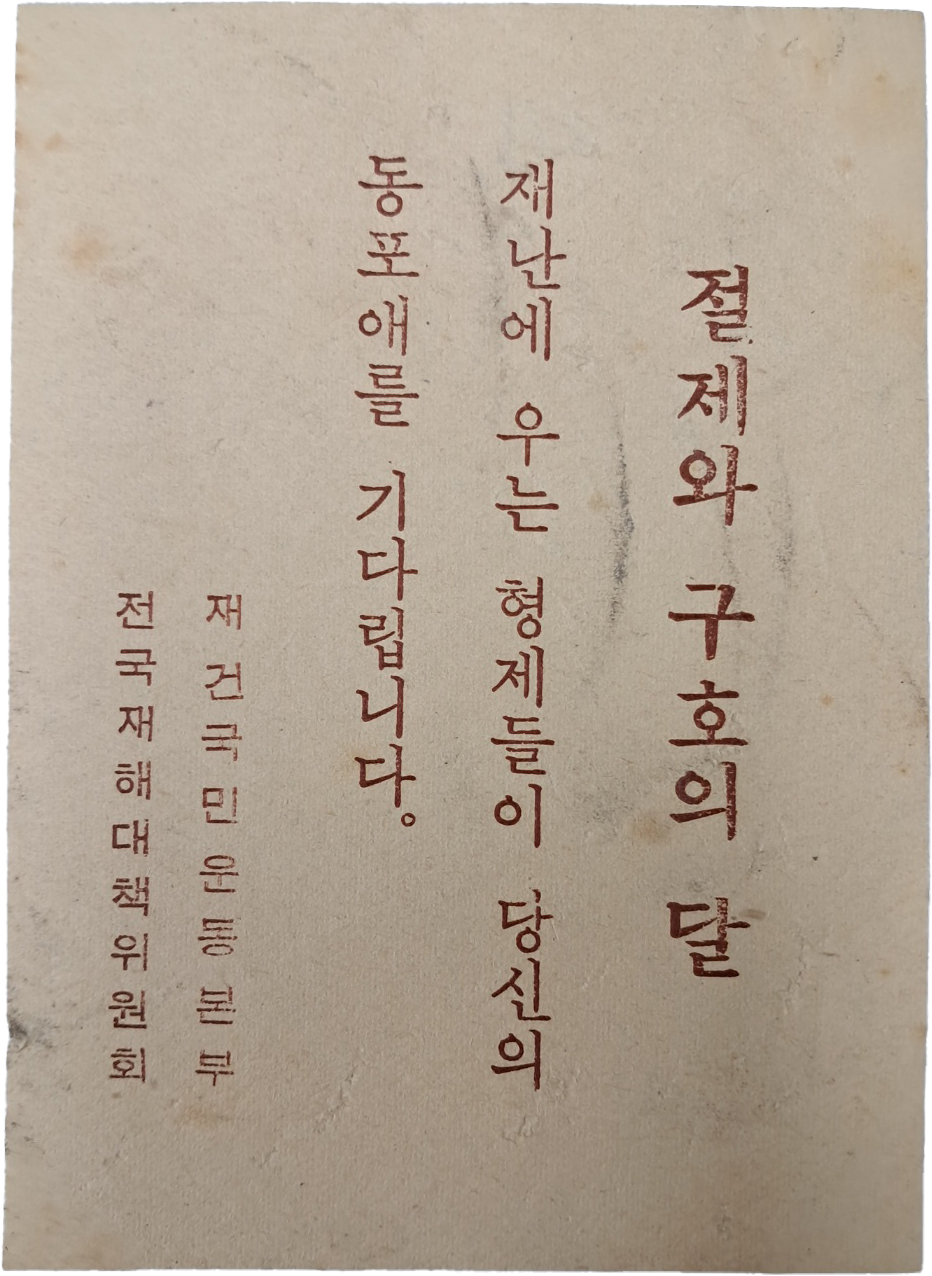 절제와 구호의 달
재난에 우는 형제들이 당신의
동포애를 기다립니다。
재건국민운동본부
전국재해대책위원회